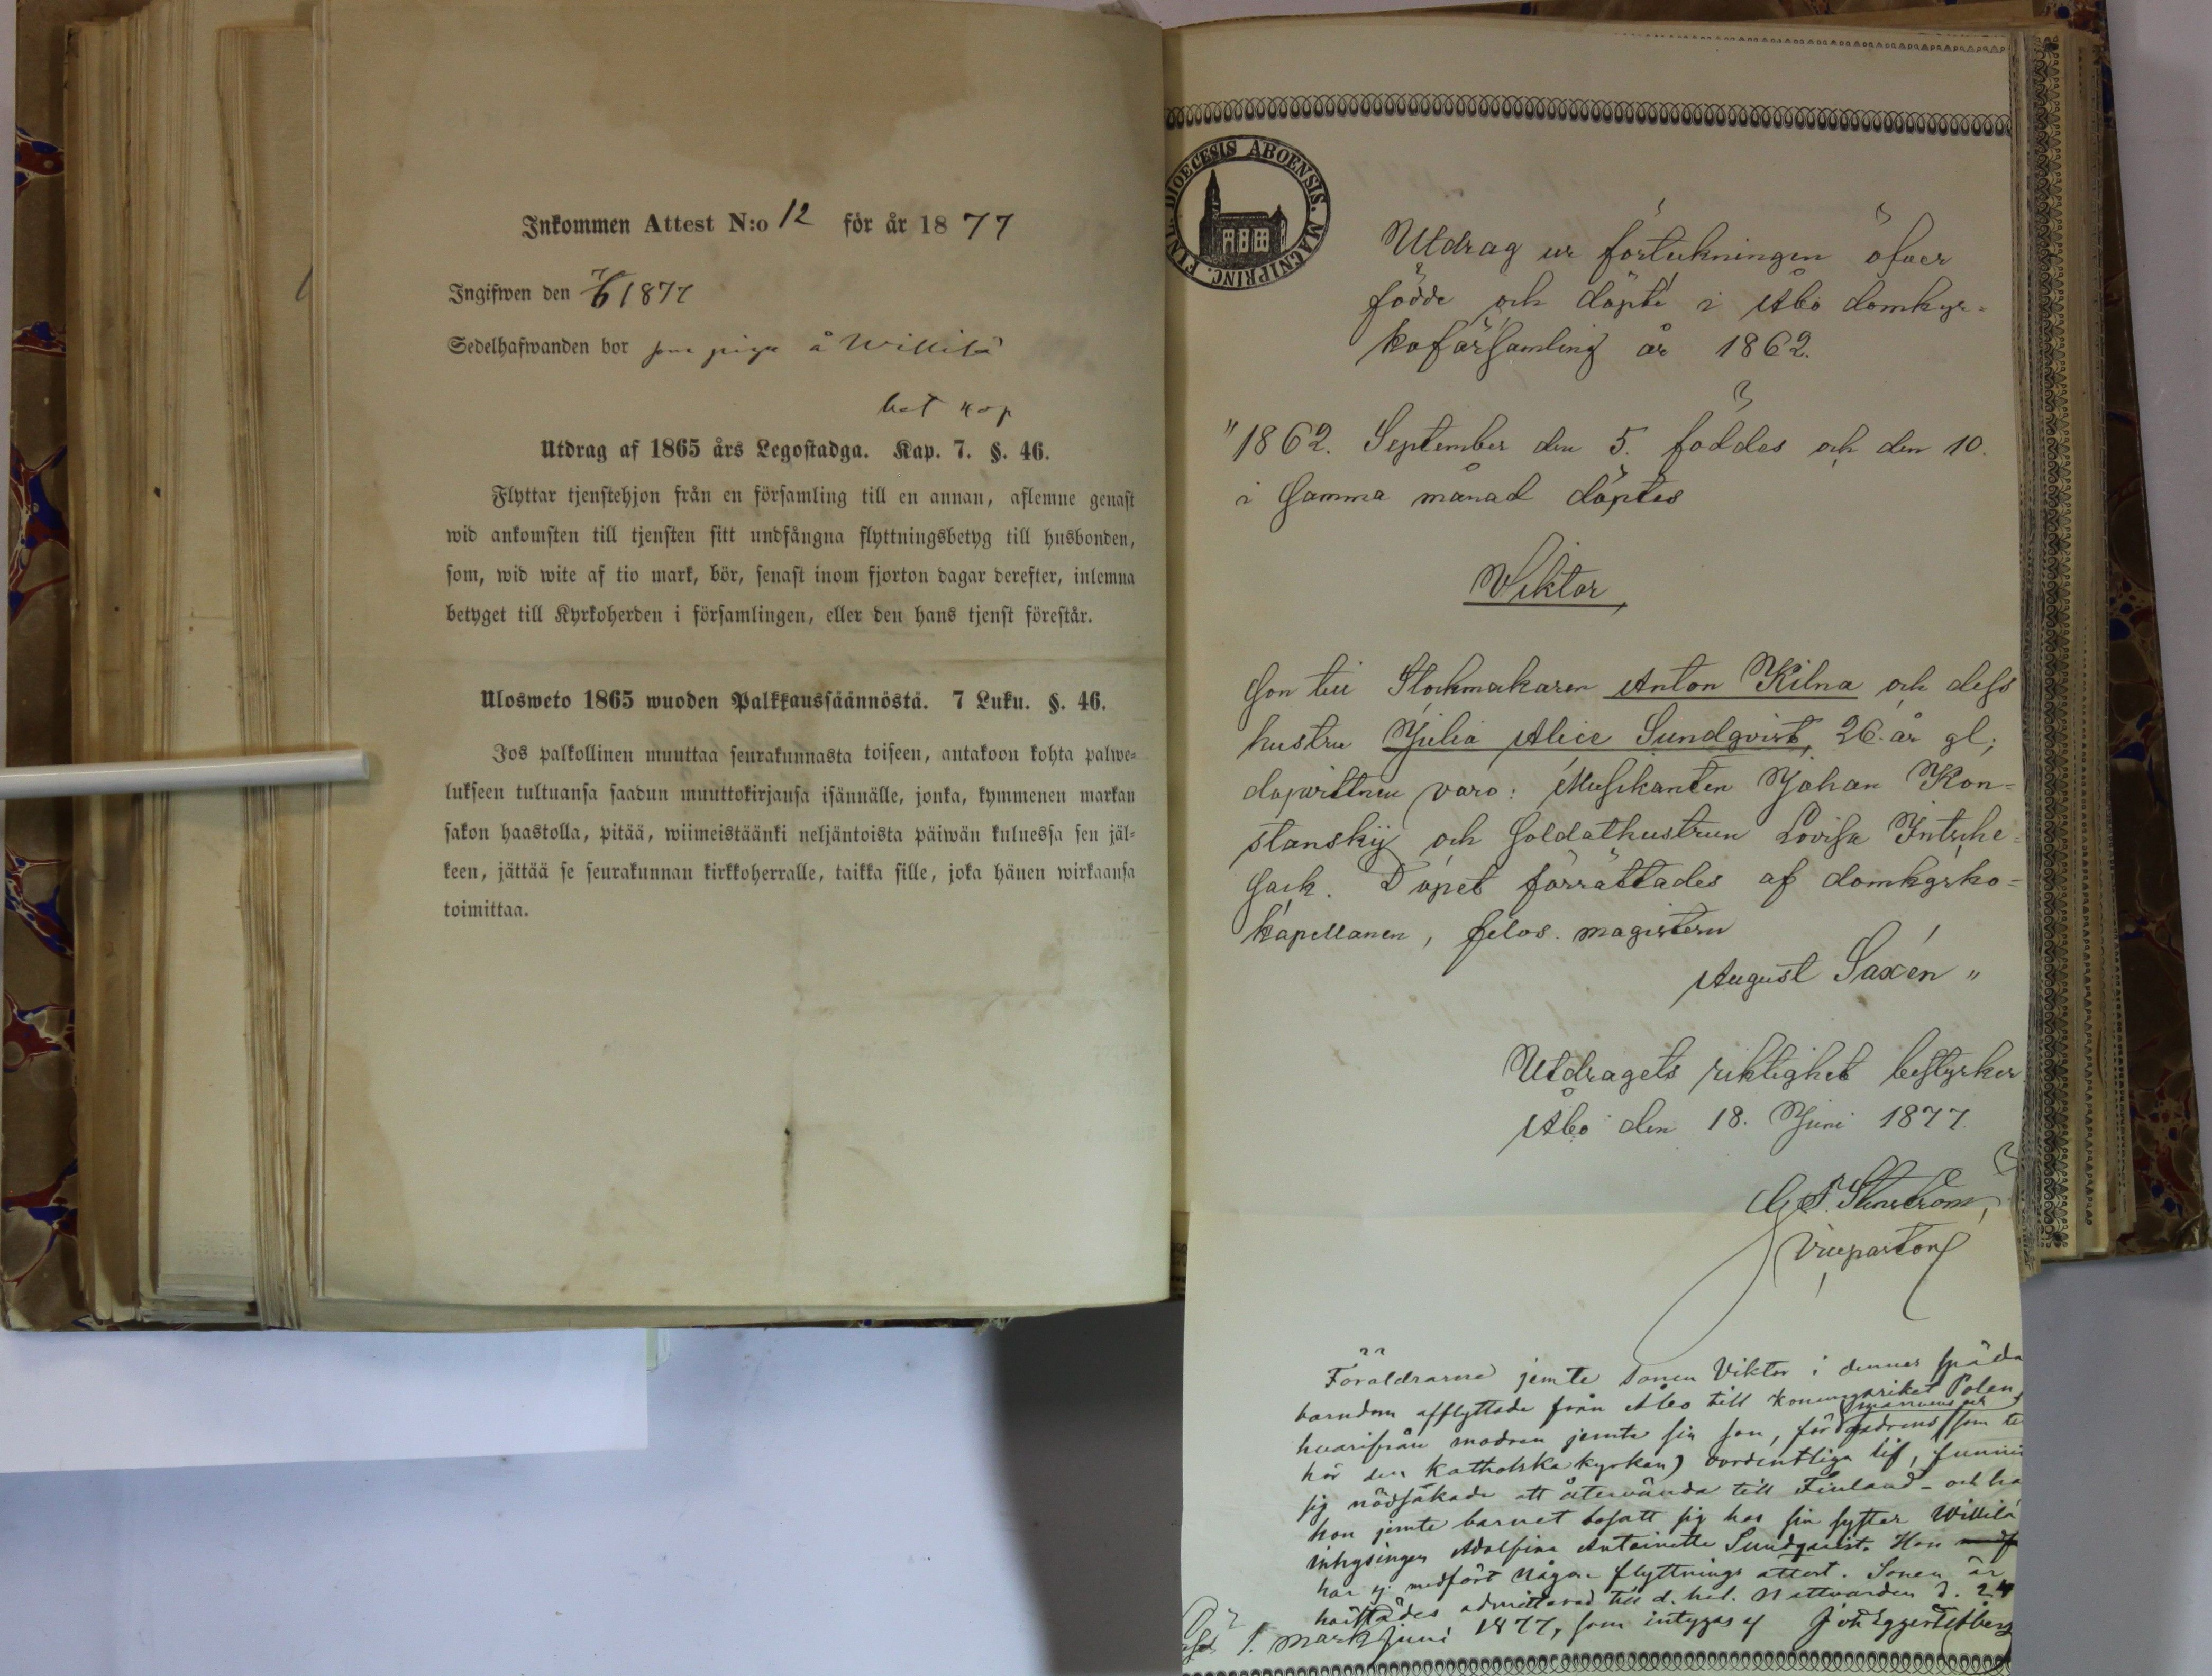 Inkommen Attest N:o 12 för år 1877
Ingifwen den 7/6 1877
Sedelhafwanden bor som piga å Willilä
bet kop
Utdrag af 1865 års Legostadga. Kap. 7. §. 46.
Flyttar tjenstehjon från en församling till en annan, aflemne genast
wid ankomsten till tjensten sitt undfångna flyttningsbetyg till husbonden,
som, wid wite af tio mark, bör, senast inom fjorton dagar derefter, inlemna
betyget till Kyrkoherden i församlingen, eller den hans tjenst förestår.
Ulosweto 1865 wuoden Palkkaussäännöstä. 7 Luku. §. 46.
Jos palkollinen muuttaa seurakunnasta toiseen, antakoon kohta palwe-
lukseen tultuansa saadun muuttokirjansa isännälle, jonka, kymmenen markan
sakon haastolla, pitää, wiimeistäänki neljäntoista päiwän kuluessa sen jäl-
keen, jättää se seurakunnan kirkkoherralle, taikka sille, joka hänen wirkaansa
toimittaa.
DIOECESIS ABOENSIS. MAGNIPRINC. FINL.
Utdrag ur förteckningen öfver
födde och döpte i Åbo domkyr=
koförsamling år 1862.
"1862. September den 5. föddes och den 10.
i samma månad döptes
Viktor,
Son till Klockmakaren Anton Kilna och dess
hustru Julia Alice Sundqvist, 26 år gl;
dopvittnen voro: Musikanten Johan Kon=
stanskij och Soldathustrun Lovisa Intsche=
sack. Dopet förrättades af domkyrko=
kapellanen, filos. magistern
August Saxén"
Utdragets riktighet bestyrker
Åbo den 18. Juni 1877.
Stenström,
Vicepastor
Föräldrarne jemte sonen Viktor i dennes späda
barndom afflyttade från Åbo till Konungariket Polen,
hvarifrån modren jemte sin son, för mannens och fadrens (som til
hör den Katholska kyrkan) oordentliga lif, funnit
sig nödsakade att återvända till Finland - och ha
hon jemte barnet bosatt sig hos sin syster Willilä
inhysingen Adolfina Antoinette Sundqvist. Hon
har ej medfört någon flyttnings attest. Sonen är
härstädes admitterad till d. hel. Nattvarden d. 24
1. mark juni 1877, som intygas af Joh Eggert